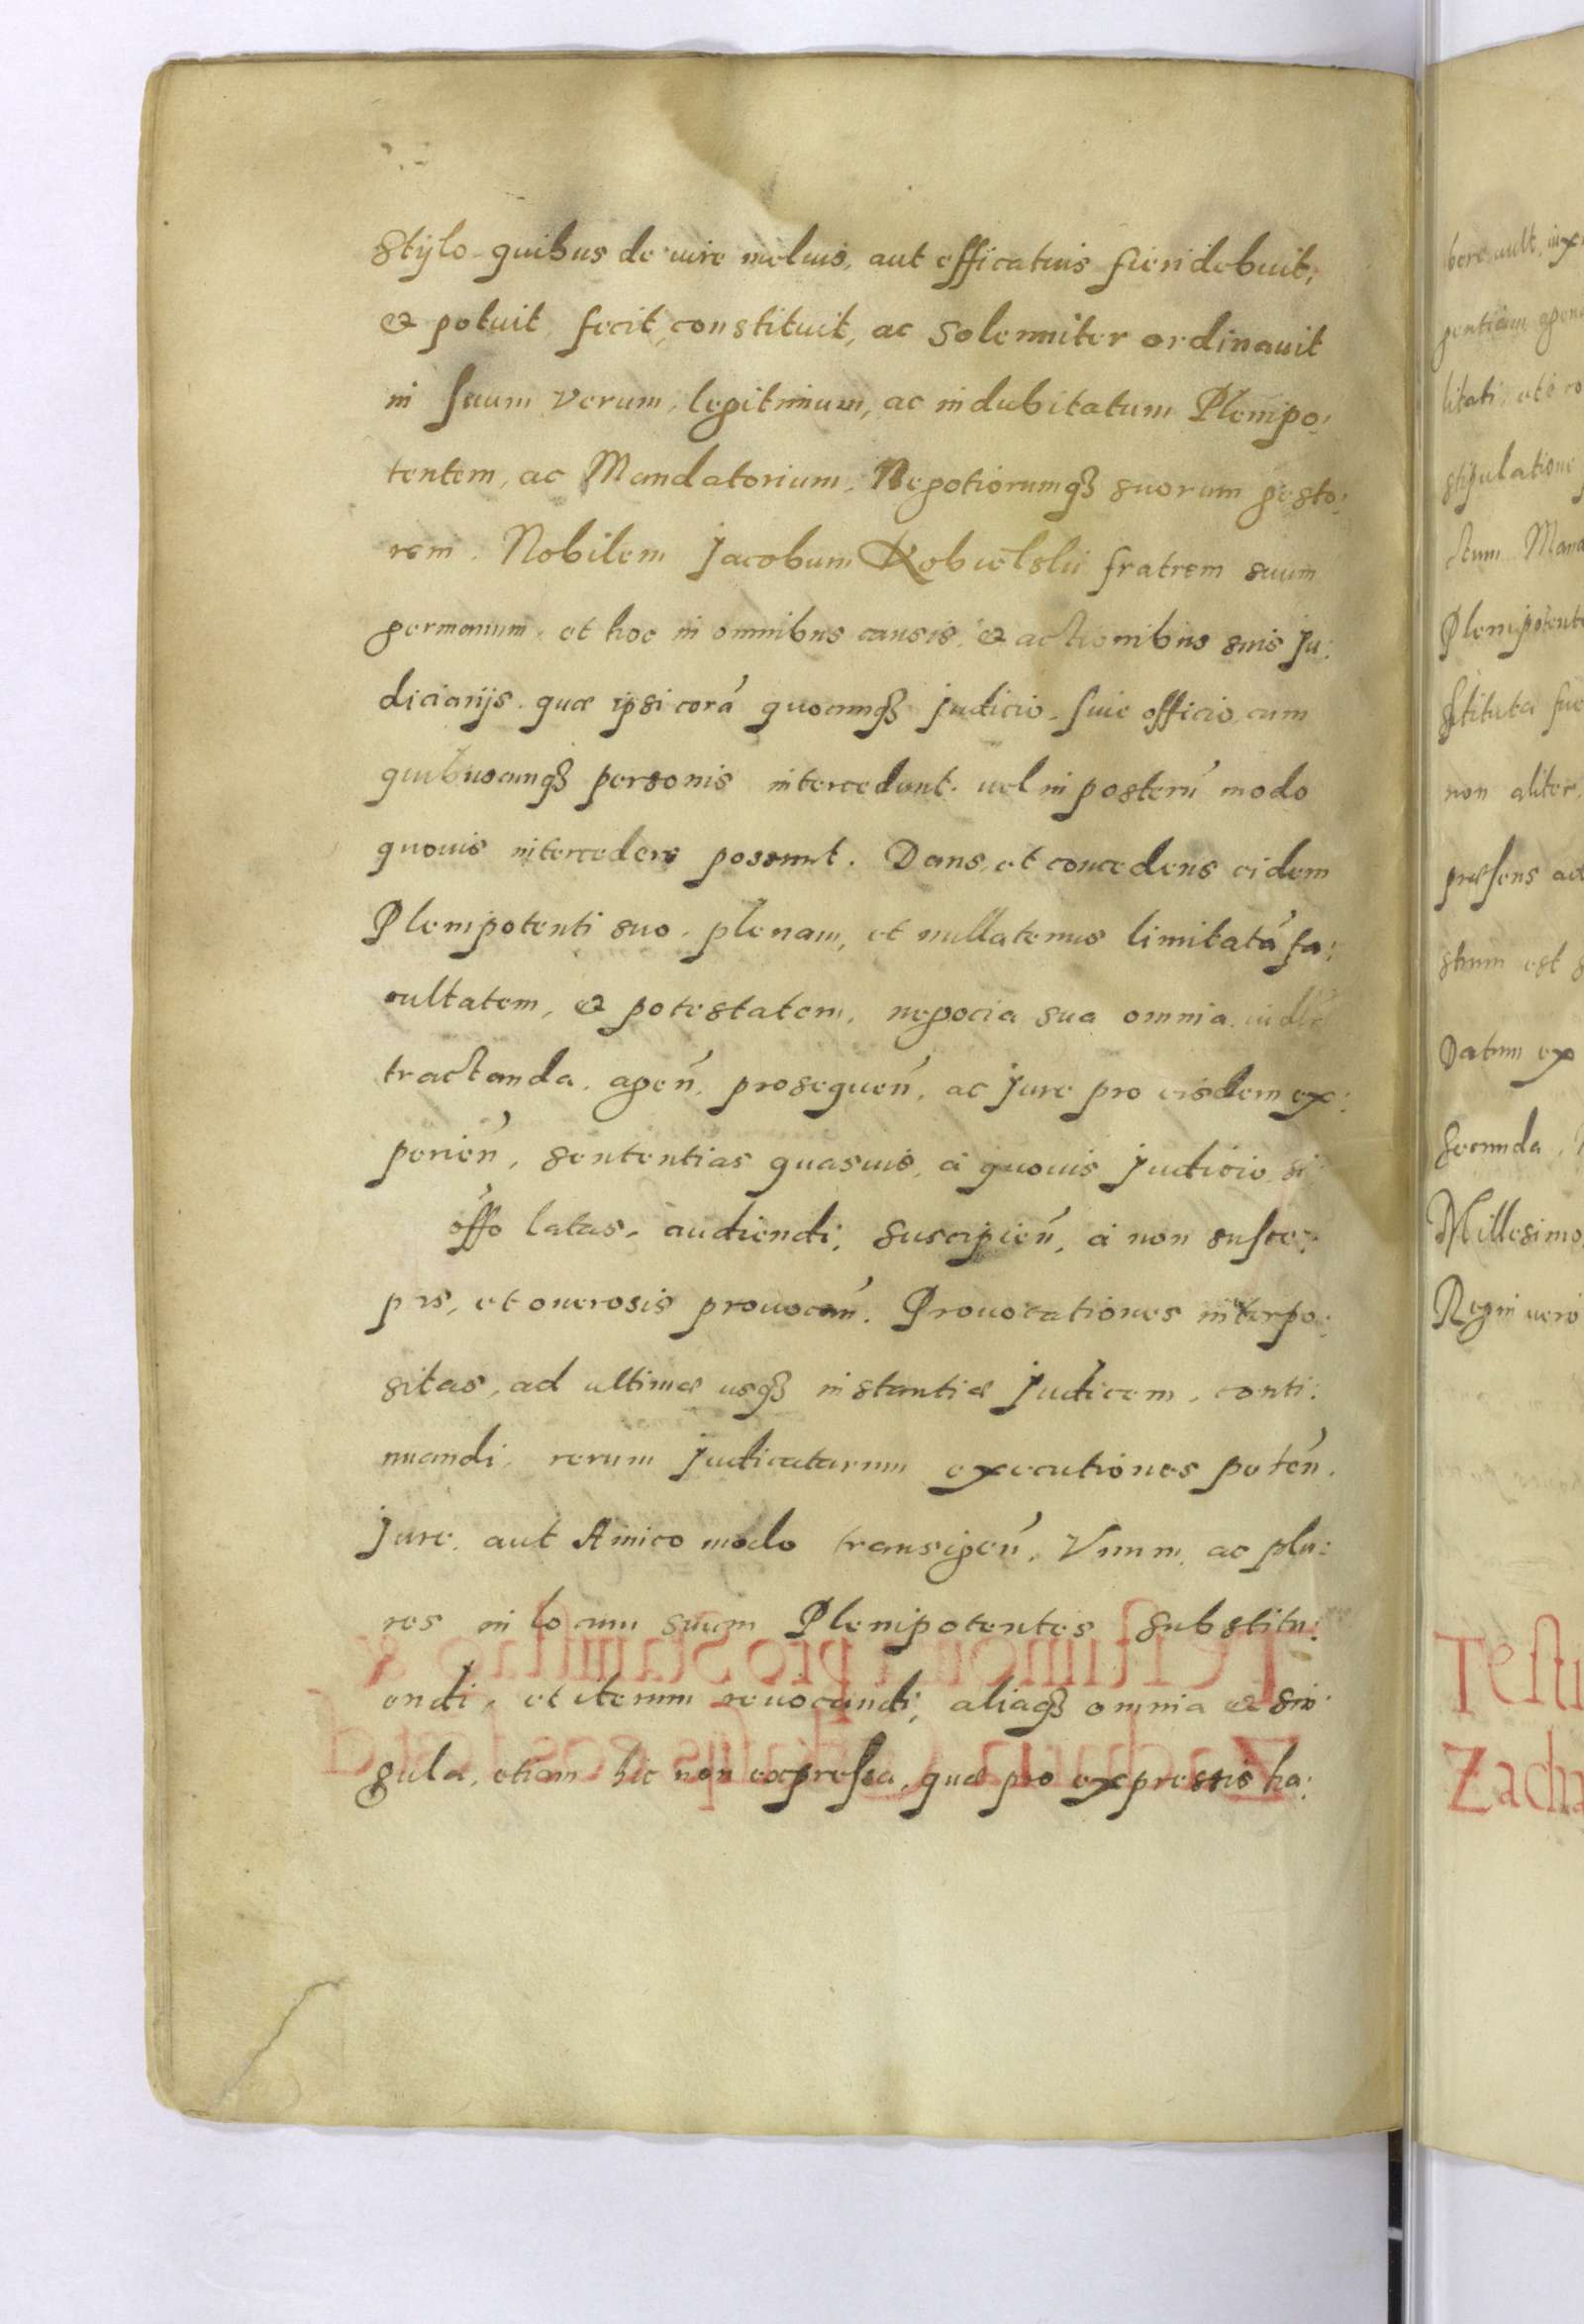 Stylo quibus de iure melius, aut efficatius fieri debuit,
& potuit, fecit, constituit, ac Solenniter ordinavit
in suum verum, legitimum, ac indubitatum Plenipo:
tentem, ac Mandatorium, Negotiorumq3 suorum gesto:
rem. Nobilem Jacobum fratrem suum
germanum, et hoc in omnibus causis, & actionibus suis Ju:
diciarijs, quæ ipsi corã quocunq3 judicio, sive officio, cum
quibuscunq3 personis intercedunt, uel in posterũ modo
quovis intercedere possunt. Dans, et concedens eidem
Plenipotenti suo, plenam, et nullatenus limitatã fa:
cultatem, & potestatem, negocia sua omnia
tractanda, agen̄, prosequen̄, ac Jure pro eisdem ex:
perien̄, sententias quasvis, a quovis Judicio
offo latas, audiendi, suscipien̄, a non susce:
ptis, et onerosis provocan̄. Provocationes interpo:
sitas, ad ultimæ usq3 instantiæ Judicem, conti:
nuandi, rerum judicatarum executiones peten̄.
Jure, aut Amico modo transigen̄, Vnum, ac plu:
res in locum suum Plenipotentes substitu:
endi, et iterum reuocandi, aliaq3 omnia & sin:
gula, etiam hic non expressa, quæ pro expressis ha:
bere uult,
Plenipotente
non aliter,
præsens
est
Datum ex
Secunda,
Millesimo
Regni uero
Zacha